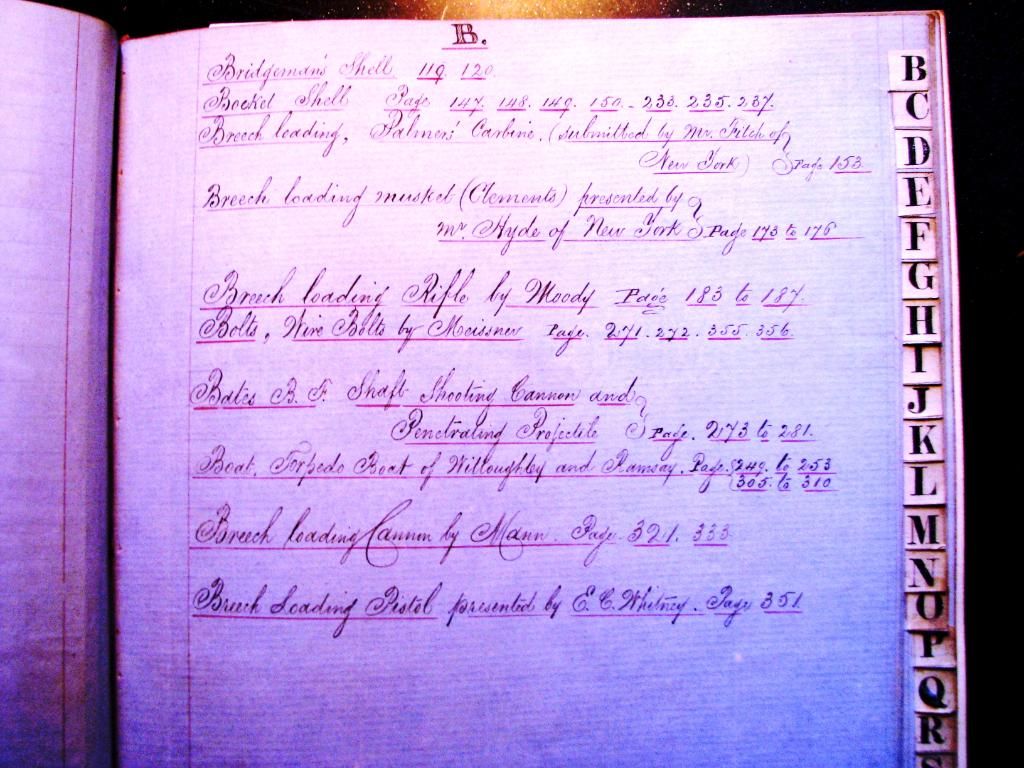 B.
Bridgeman's Shell 119. 120.
Bocket Shell Page 147. 148. 149. 150 - 233. 235. 237.
Breech loading, Palmers' Carbine. (submitted by Mr. Fitch of
New York) Page 153
Breech loading musket (Clements) presented by
Mr. Hyde of New York Page 173 to 176
Breech loading Rifle by Moody Page 183 to 187.
Bolts, Wire Bolts by Meissner Page. 271. 272. 355. 356.
Bates B. F. Shaft Shooting Cannon and
Penetrating Projectile Page. 273 to 281.
Boat, Torpedo Boat of Willoughby and Ramsay. Page. 249. to 253
305. to 310
Breech loading Cannon by Mann. Page. 321. 333
Breech Loading Pistol presented by E. C. Whitney. Page 351
B
C
D
E
F
G
H
I
J
K
L
M
N
O
P
Q
R
S